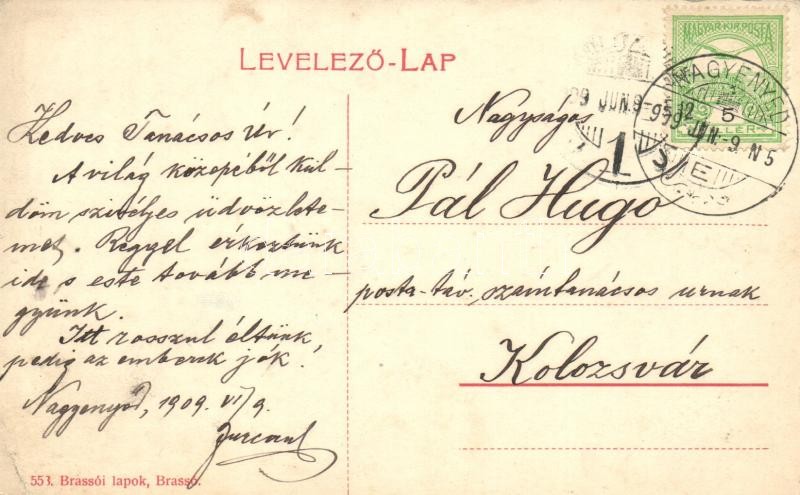 LEVELEZŐ-LAP
MAGYAR·KIR·POSTA
NAGYENYED
5
909 JUN.-9.N5
E
909 JUN.9-9
1
Kedves Tanácsos Úr!
A világ közepéből kül-
döm szivélyes üdvözlete-
met. Reggel érkeztünk
ide s este tovább me-
gyünk.
Itt rosszul éltünk,
pedig az emberek jók!
Nagyenyed, 1909. VI/9.
Nagyságos
Pál Hugo
posta-táv. számtanácsos urnak
Kolozsvár
553. Brassói lapok, Brassó.